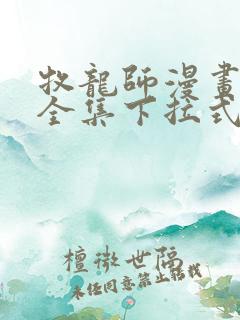 牧龍師漫畫
全集下拉式
檀微世隔
未任同意禁止饒載